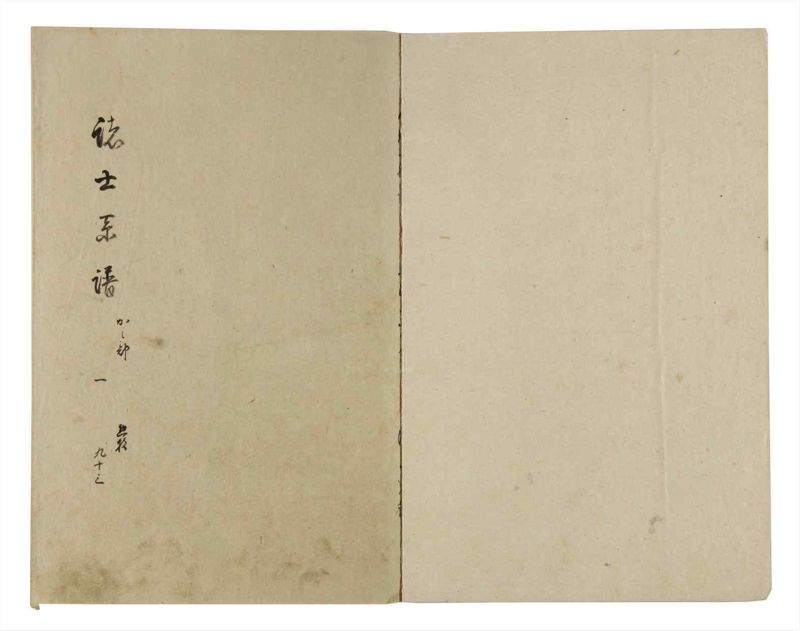 諸士系譜
か之部
一
九十三